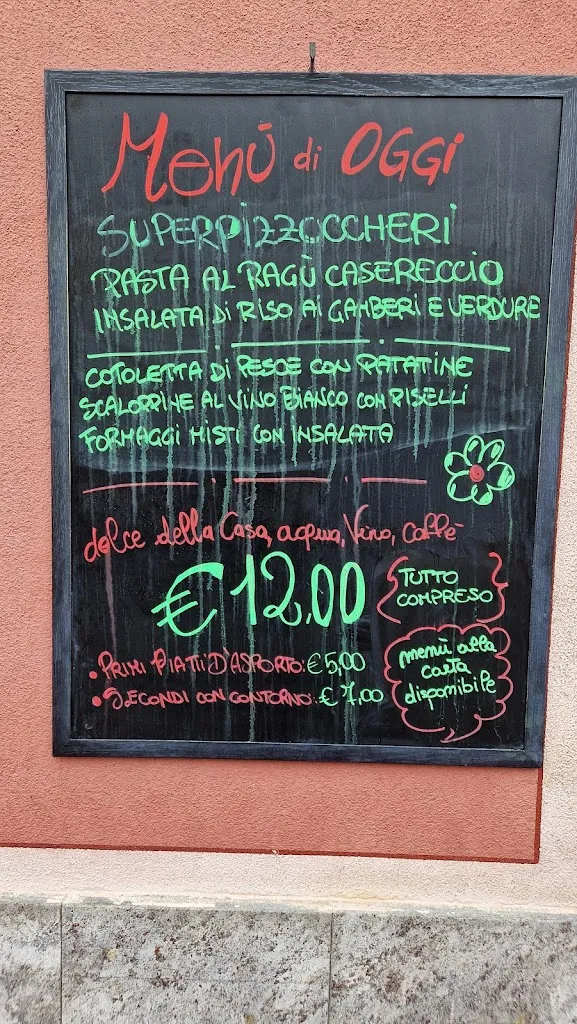 Menù di OGGi
SUPERPiZZOCCHERi
PASTA AL RAGÙ CASERECCIO
INSALATA Di RISO Ai GAMBERI E VERDURE
COTOLETTA Di PESCE CON PATATINE
SCALOPPINE AL VINO BIANCO CON PISELLI
FORMAGGI MISTI CON INSALATA
dolce della Casa, acqua, Vino, Caffè
€ 12,00
TUTTO
COMPRESO
• PRIMI PIATTI D'ASPORTO: € 5,00
• SECONDI CON CONTORNO: € 7,00
menù alla
carta
disponibile